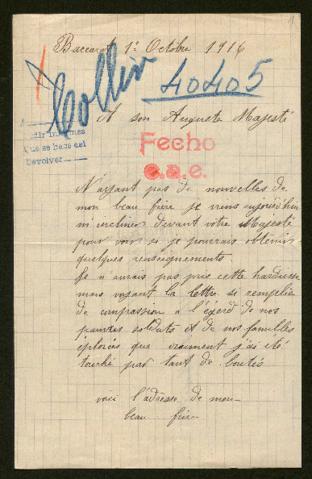 Baccarat 1er Octobre 1916
Collin
40405
A son Auguste Majesté
Fecho
e.a.e.
N'ayant pas de nouvelles de
mon beau frère je viens aujourd'hui
m'incliner devant votre Majesté
pour voir si je pourrais obtenir
quelques renseignements.
Je n'aurais pas pris cette hardiesse
mais voyant la lettre si remplie
de compassion à l'égard de nos
pauvres soldats et de nos familles
éplorées que vraiment j'ai été
touché par tant de bontés
voici l'adresse de mon
beau frère